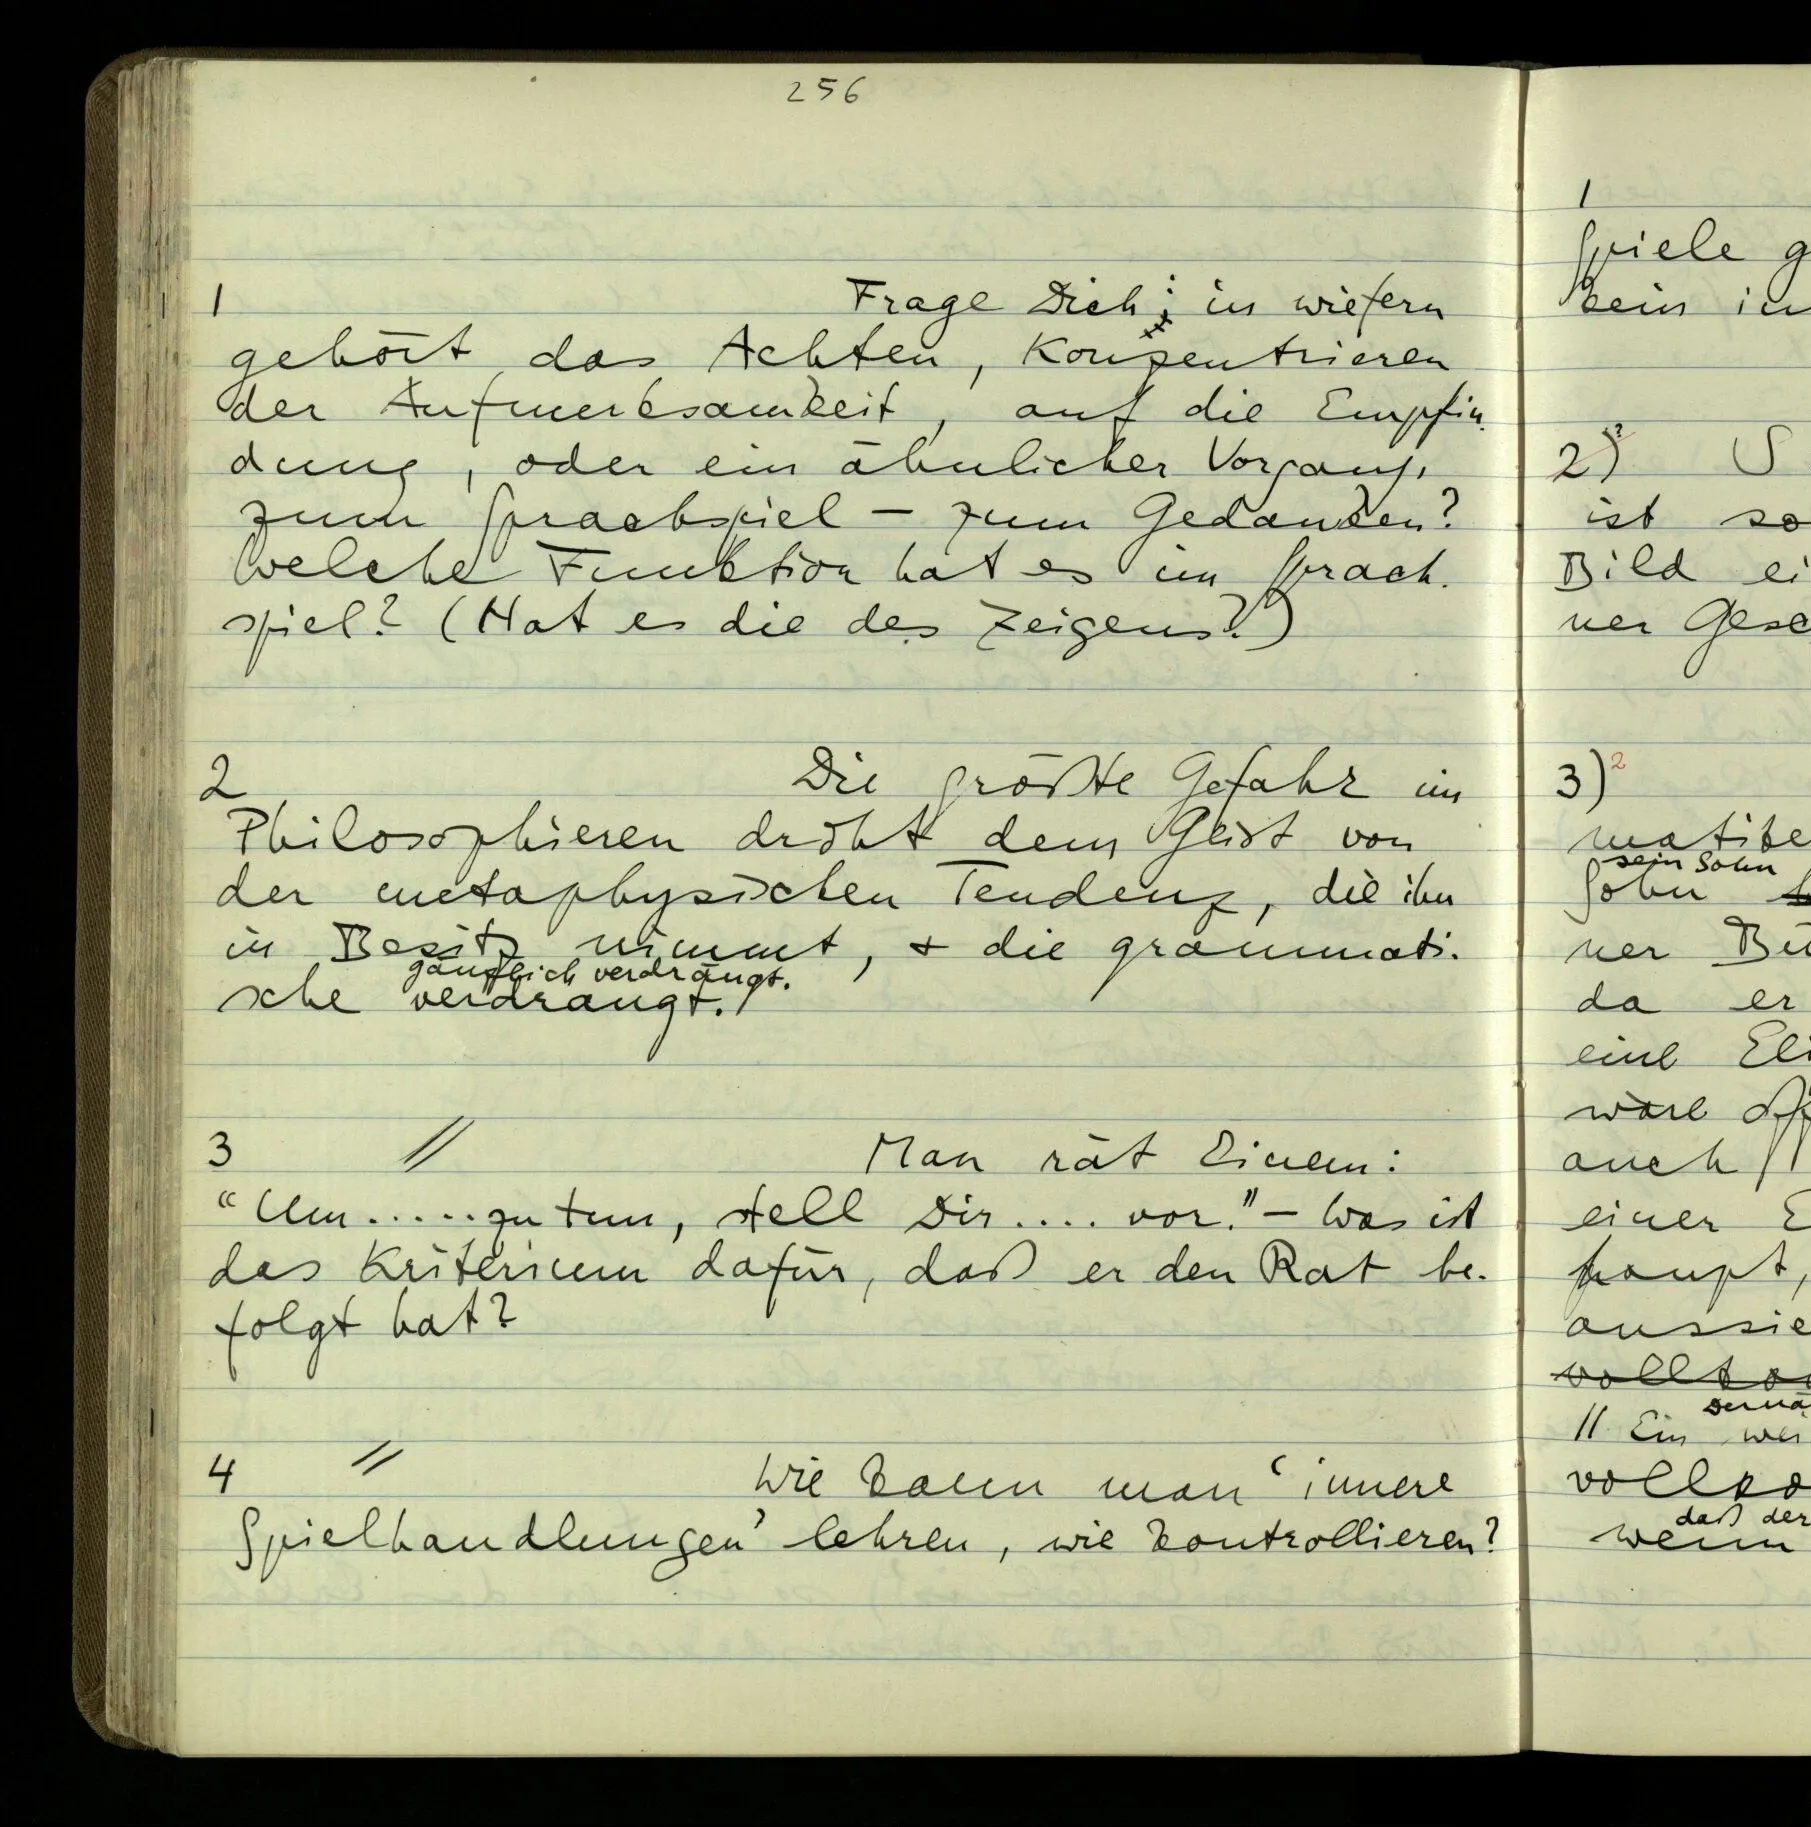 256
1 Frage Dich: in wiefern
gehört das Achten, Konzentrieren
der Aufmerksamkeit, auf die Empfin-
dung, oder ein ähnlicher Vorgang,
zum Sprachspiel – zum Gedanken?
Welche Funktion hat es im Sprach-
spiel? (Hat es die des Zeigens?)
2 Die größte Gefahr im
Philosophieren droht dem Geist von
der metaphysischen Tendenz, die ihn
in Besitz nimmt, + die grammati-
gänzlich verdrängt.
sche verdrängt.
3 // Man rät Einem:
“Um.....zu tun, stell Dir.... vor.” – Was ist
das Kriterium dafür, daß er den Rat be-
folgt hat?
4 // Wie kann man ‘innere
Spielhandlungen’ lehren, wie kontrollieren?
1
Spiele g
sein in
2) S
ist so
Bild ei
ner Gesc
3) 2
matike
sein Sohn
Sohn
ner Bü
da er
eine Eli
wäre
auch
einer E
haupt,
aussie
vollko
// Ein
vollko
daß der
wenn